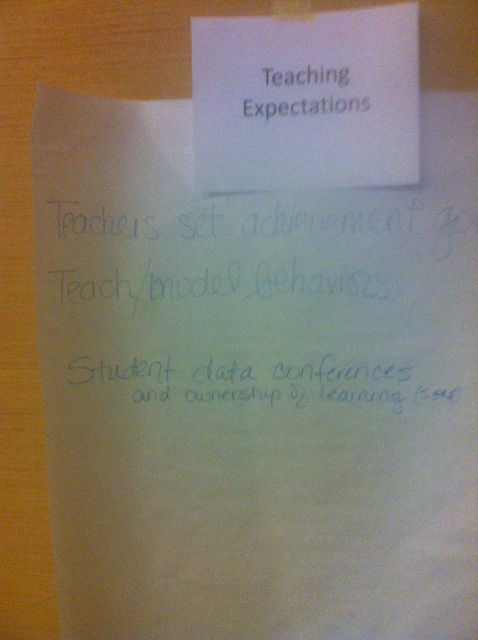 Teaching
Expectations
Teachers set achievement go
Teach/model behaviors
Student data conferences
and ownership of learning